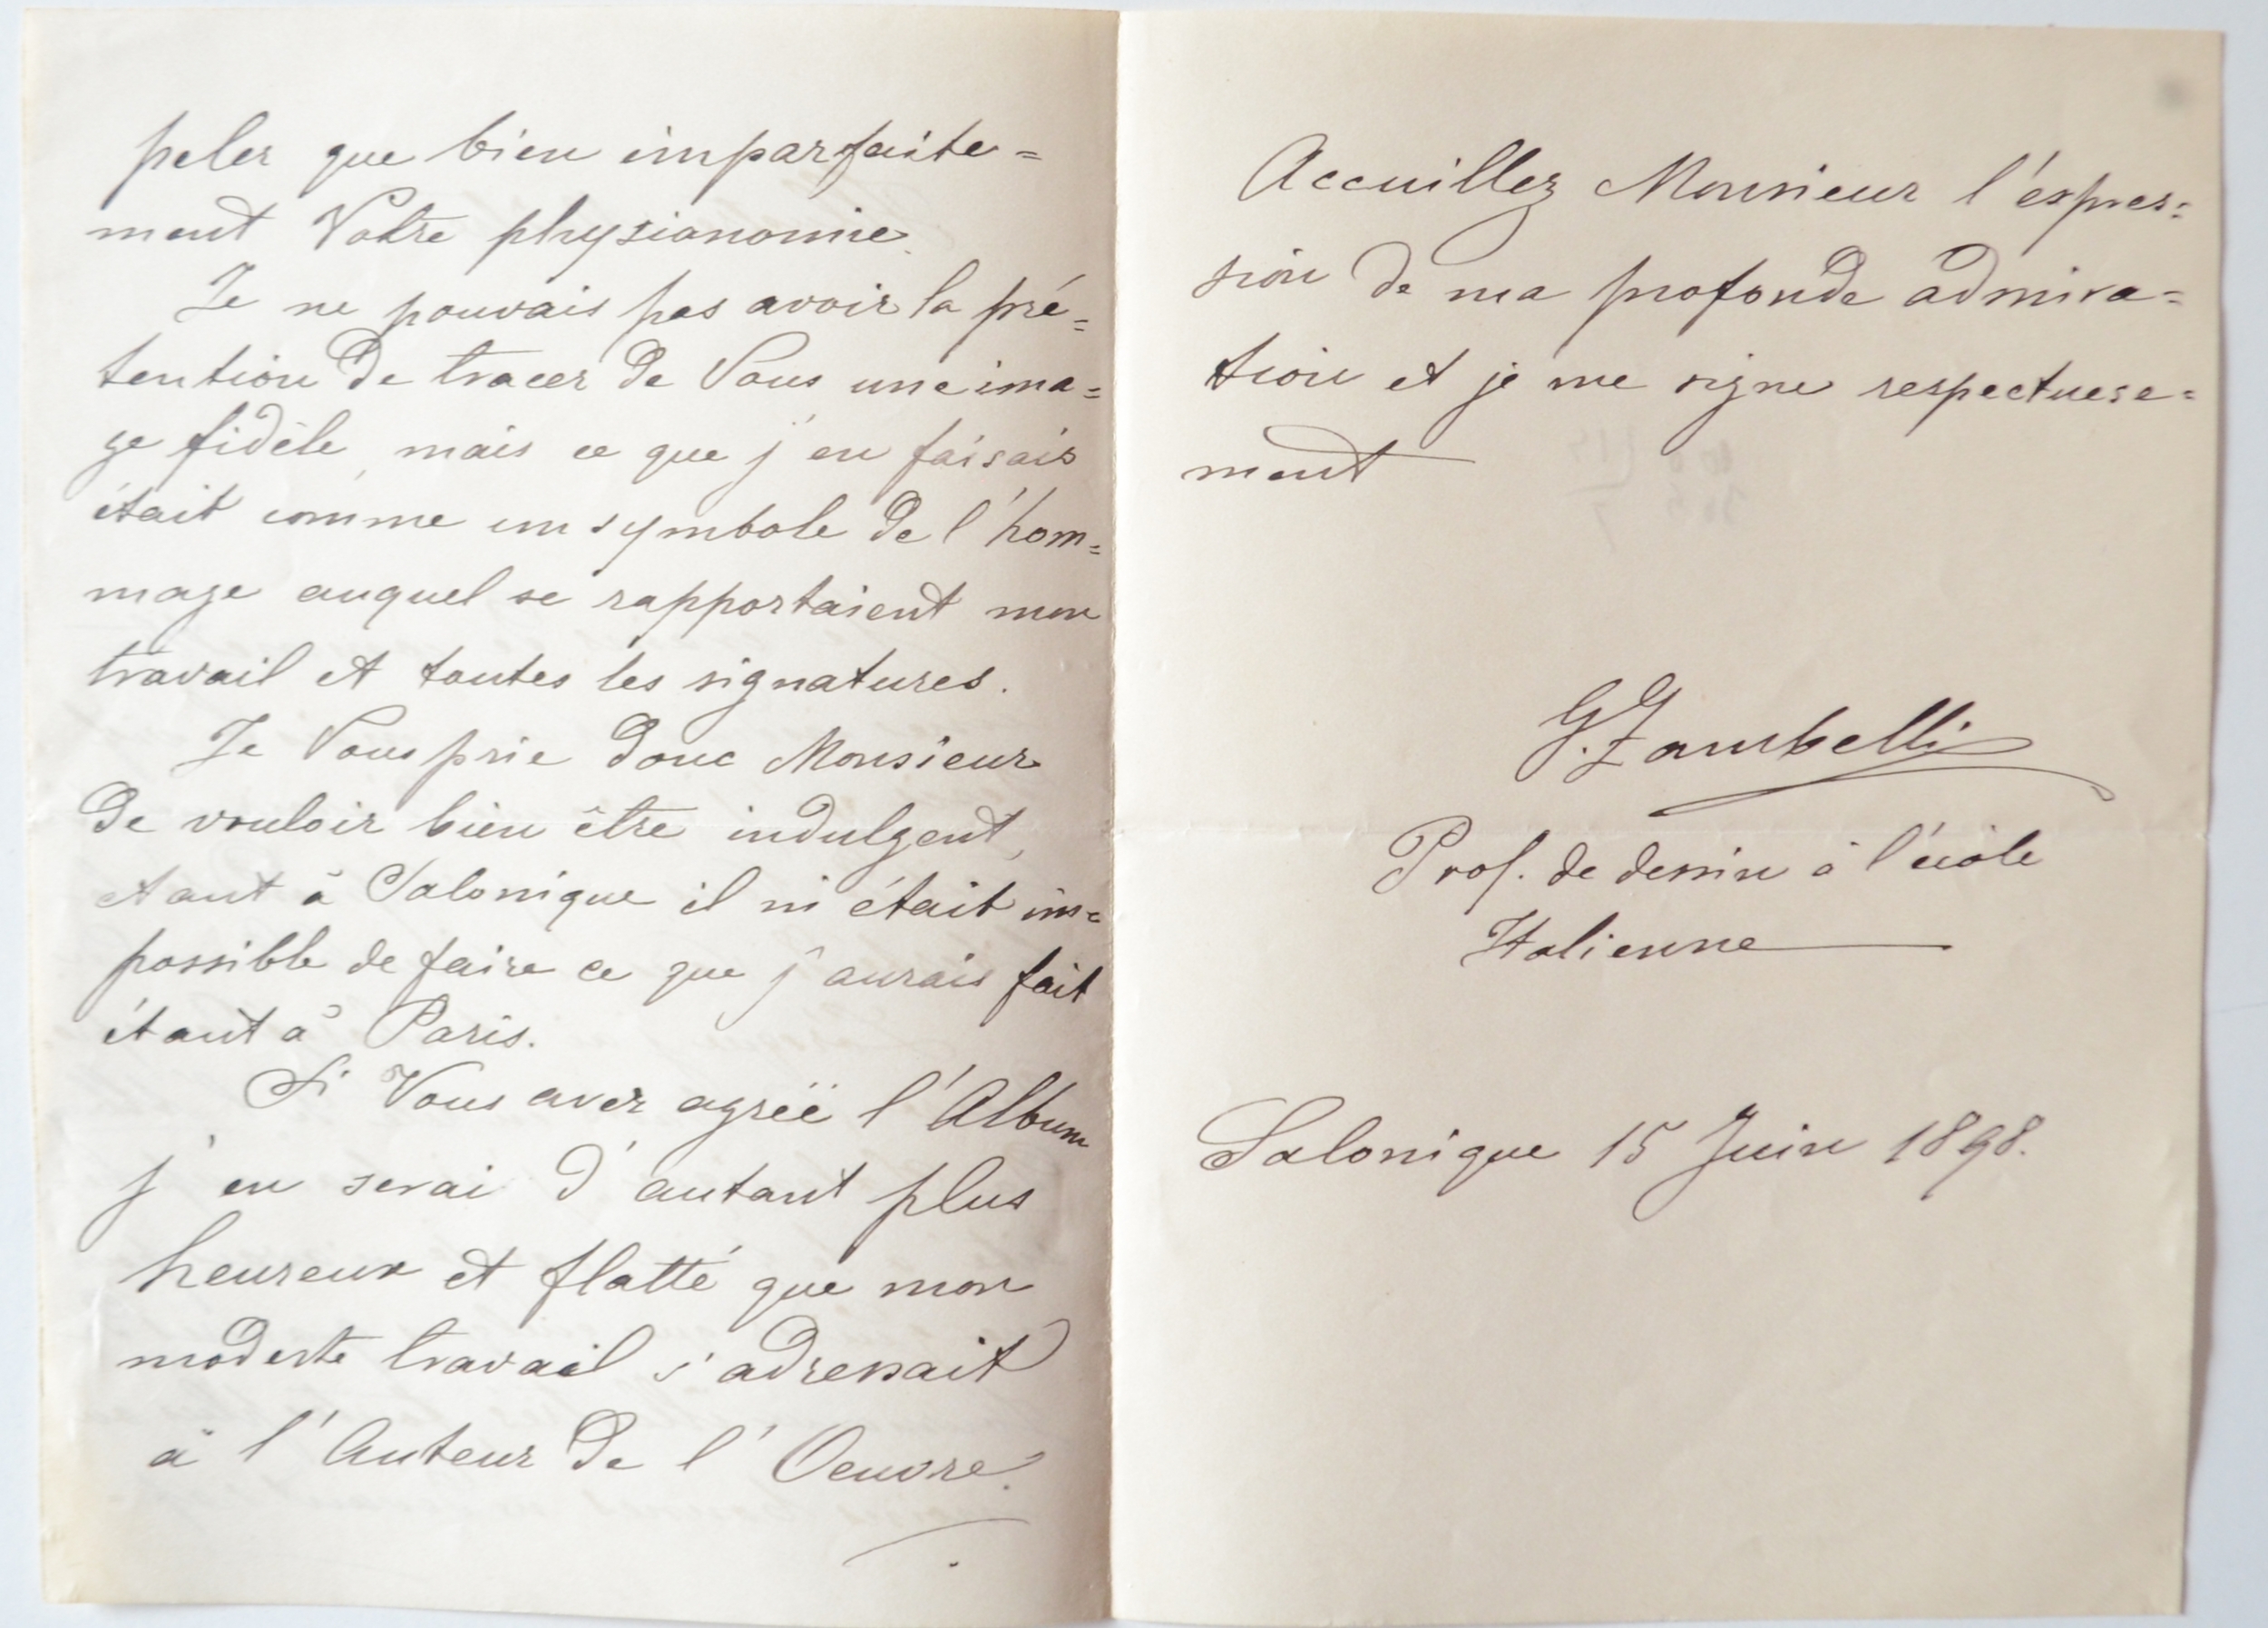 peler que bien imparfaite=
ment Votre physionomie.
Je ne pouvais pas avoir la pré=
tention de tracer de Vous une ima=
ge fidèle, mais ce que j'en faisais
était comme un symbole de l'hom=
mage auquel se rapportaient mon
travail et toutes les signatures.
Je Vous prie donc Monsieur
de vouloir bien être indulgent,
étant à Salonique il m'était im=
possible de faire ce que j'aurais fait
étant à Paris.
Si Vous avez agréé l'Album
j'en serai d'autant plus
heureux et flatté que mon
modeste travail s'adressait
à l'Auteur de l'Oeuvre.
Accuillez Monsieur l'éspres=
sion de ma profonde admira=
tion et je me signe respectuese=
ment
G. Zambelli
Prof. de dessin à l'école
Italienne
Salonique 15 Juin 1898.